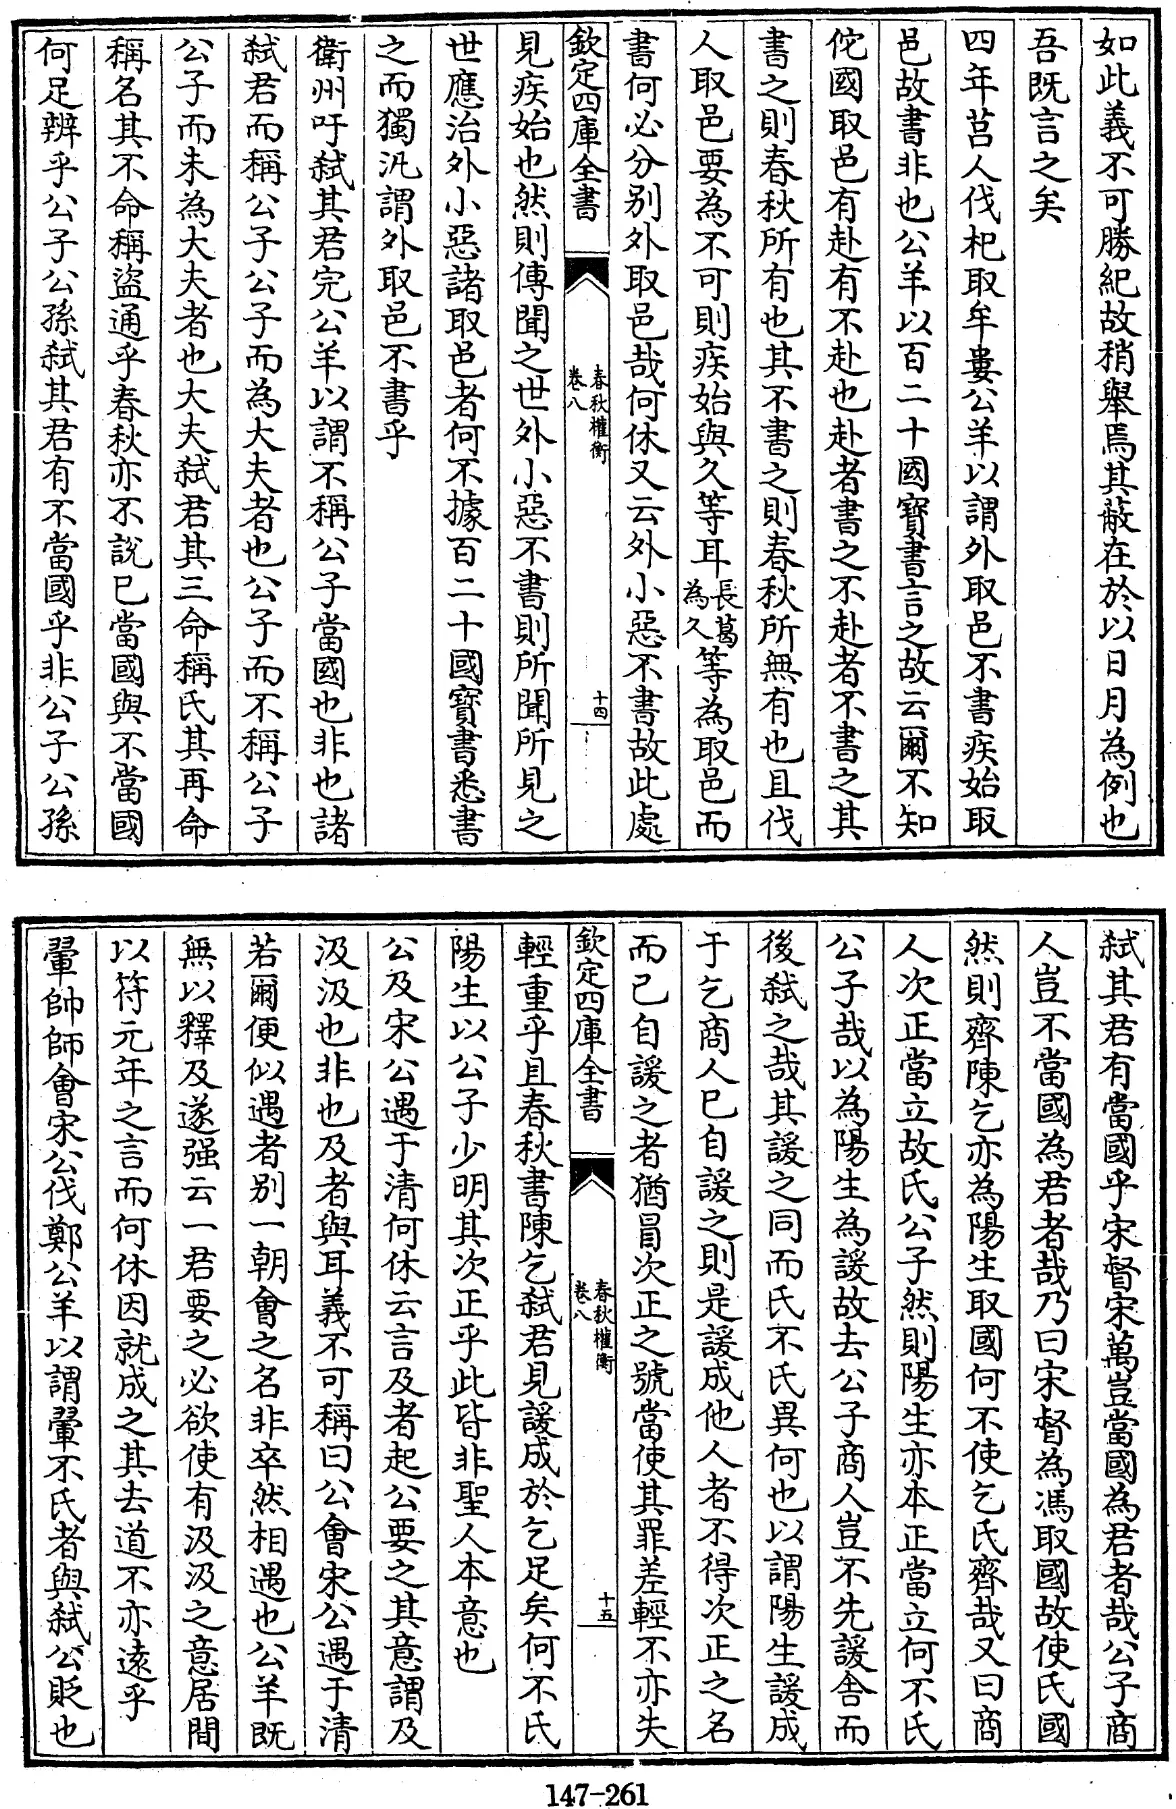 如此義不可勝紀故稍舉焉其蔽在於以日月為例也
吾既言之矣
四年莒人伐杞取牟婁公羊以謂外取邑不書疾始取
邑故書非也公羊以百二十國寶書言之故云爾不知
佗國取邑有赴有不赴也赴者書之不赴者不書之其
書之則春秋所有也其不書之則春秋所無有也且伐
人取邑要為不可則疾始與久等耳長葛為久等為取邑而
書何必分别外取邑哉何休又云外小惡不書故此處
欽定四庫全書
春秋權衡
卷八
十四
見疾始也然則傳聞之世外小惡不書則所聞所見之
世應治外小惡諸取邑者何不據百二十國寶書悉書
之而獨汎謂外取邑不書乎
衛州吁弑其君完公羊以謂不稱公子當國也非也諸
弑君而稱公子公子而為大夫者也公子而不稱公子
公子而未為大夫者也大夫弑君其三命稱氏其再命
稱名其不命稱盜通乎春秋亦不說已當國與不當國
何足辨乎公子公孫弑其君有不當國乎非公子公孫
弑其君有當國乎宋督宋萬豈當國為君者哉公子商
人豈不當國為君者哉乃曰宋督為馮取國故使氏國
然則齊陳乞亦為陽生取國何不使乞氏齊哉又曰商
人次正當立故氏公子然則陽生亦本正當立何不氏
公子哉以為陽生為諼故去公子商人豈不先諼舍而
後弑之哉其諼之同而氏不氏異何也以謂陽生諼成
于乞商人已自諼之則是諼成他人者不得次正之名
而已自諼之者猶冒次正之號當使其罪差輕不亦失
欽定四庫全書
春秋權衡
卷八
十五
輕重乎且春秋書陳乞弑君見諼成於乞足矣何不氏
陽生以公子少明其次正乎此皆非聖人本意也
公及宋公遇于清何休云言及者起公要之其意謂及
汲汲也非也及者與耳義不可稱曰公會宋公遇于清
若爾便似遇者别一朝會之名非卒然相遇也公羊既
無以釋及遂强云一君要之必欲使有汲汲之意居間
以符元年之言而何休因就成之其去道不亦遠乎
翬帥師會宋公伐鄭公羊以謂翬不氏者與弑公貶也
147-261